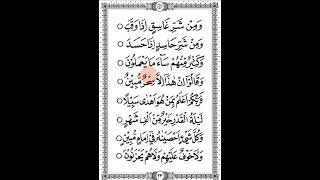 وَمِنْ شَرِّ غَاسِقٍ إِذَا وَقَبَ
وَمِنْ شَرِّ حَاسِدٍ إِذَا حَسَدَ
وَكَثِيْرٌ مِّنْهُمْ سَآءَ مَا يَعْمَلُوْنَ
وَقَالُوْٓا اِنْ هٰذَآ اِلَّا سِحْرٌ مُّبِيْنٌ
فَرَبُّكُمْ اَعْلَمُ بِمَنْ هُوَ اَهْدٰى سَبِيْلًا
لَيْلَةُ الْقَدْرِ خَيْرٌ مِّنْ اَلْفِ شَهْرٍ
وَكُلَّ شَيْءٍ اَحْصَيْنٰهُ فِيْٓ اِمَامٍ مُّبِيْنٍ
وَلَا خَوْفٌ عَلَيْهِمْ وَلَا هُمْ يَحْزَنُوْنَ